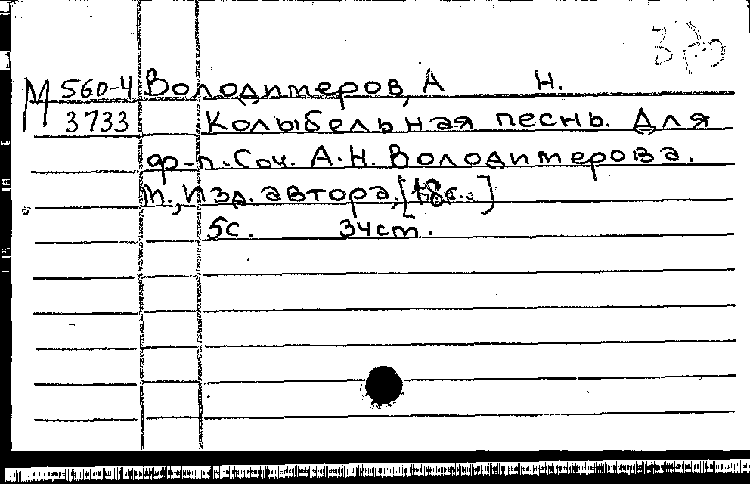 М 560-4 Володимеров, А Н.
3733 Колыбельная песнь. Для
ф-п. Соч. А.Н. Володимерова.
п., Изд. автора, [18
5с. 34см.